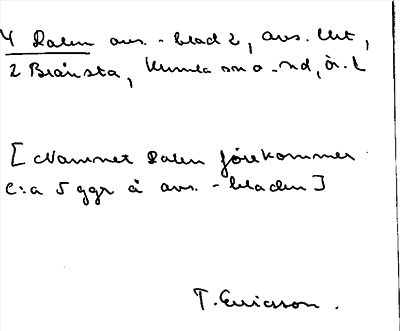 4 Dalen avs.-blad 2, avs. Utt,
2 Brånsta, Kumla sn o. -nd, Ör. l
[Namnet Dalen förekommer
c:a 5 ggr å avs.-bladen]
T. Ericsson.